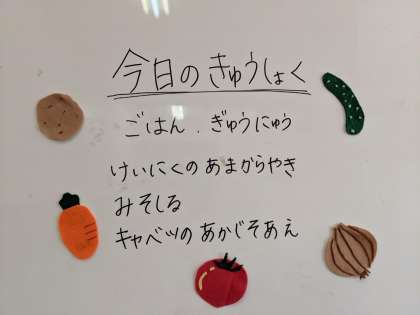 今日のきゅうしょく
ごはん.ぎゅうにゅう
けいにくのあまがらやき
みそしる
キャベツのあかじそあえ